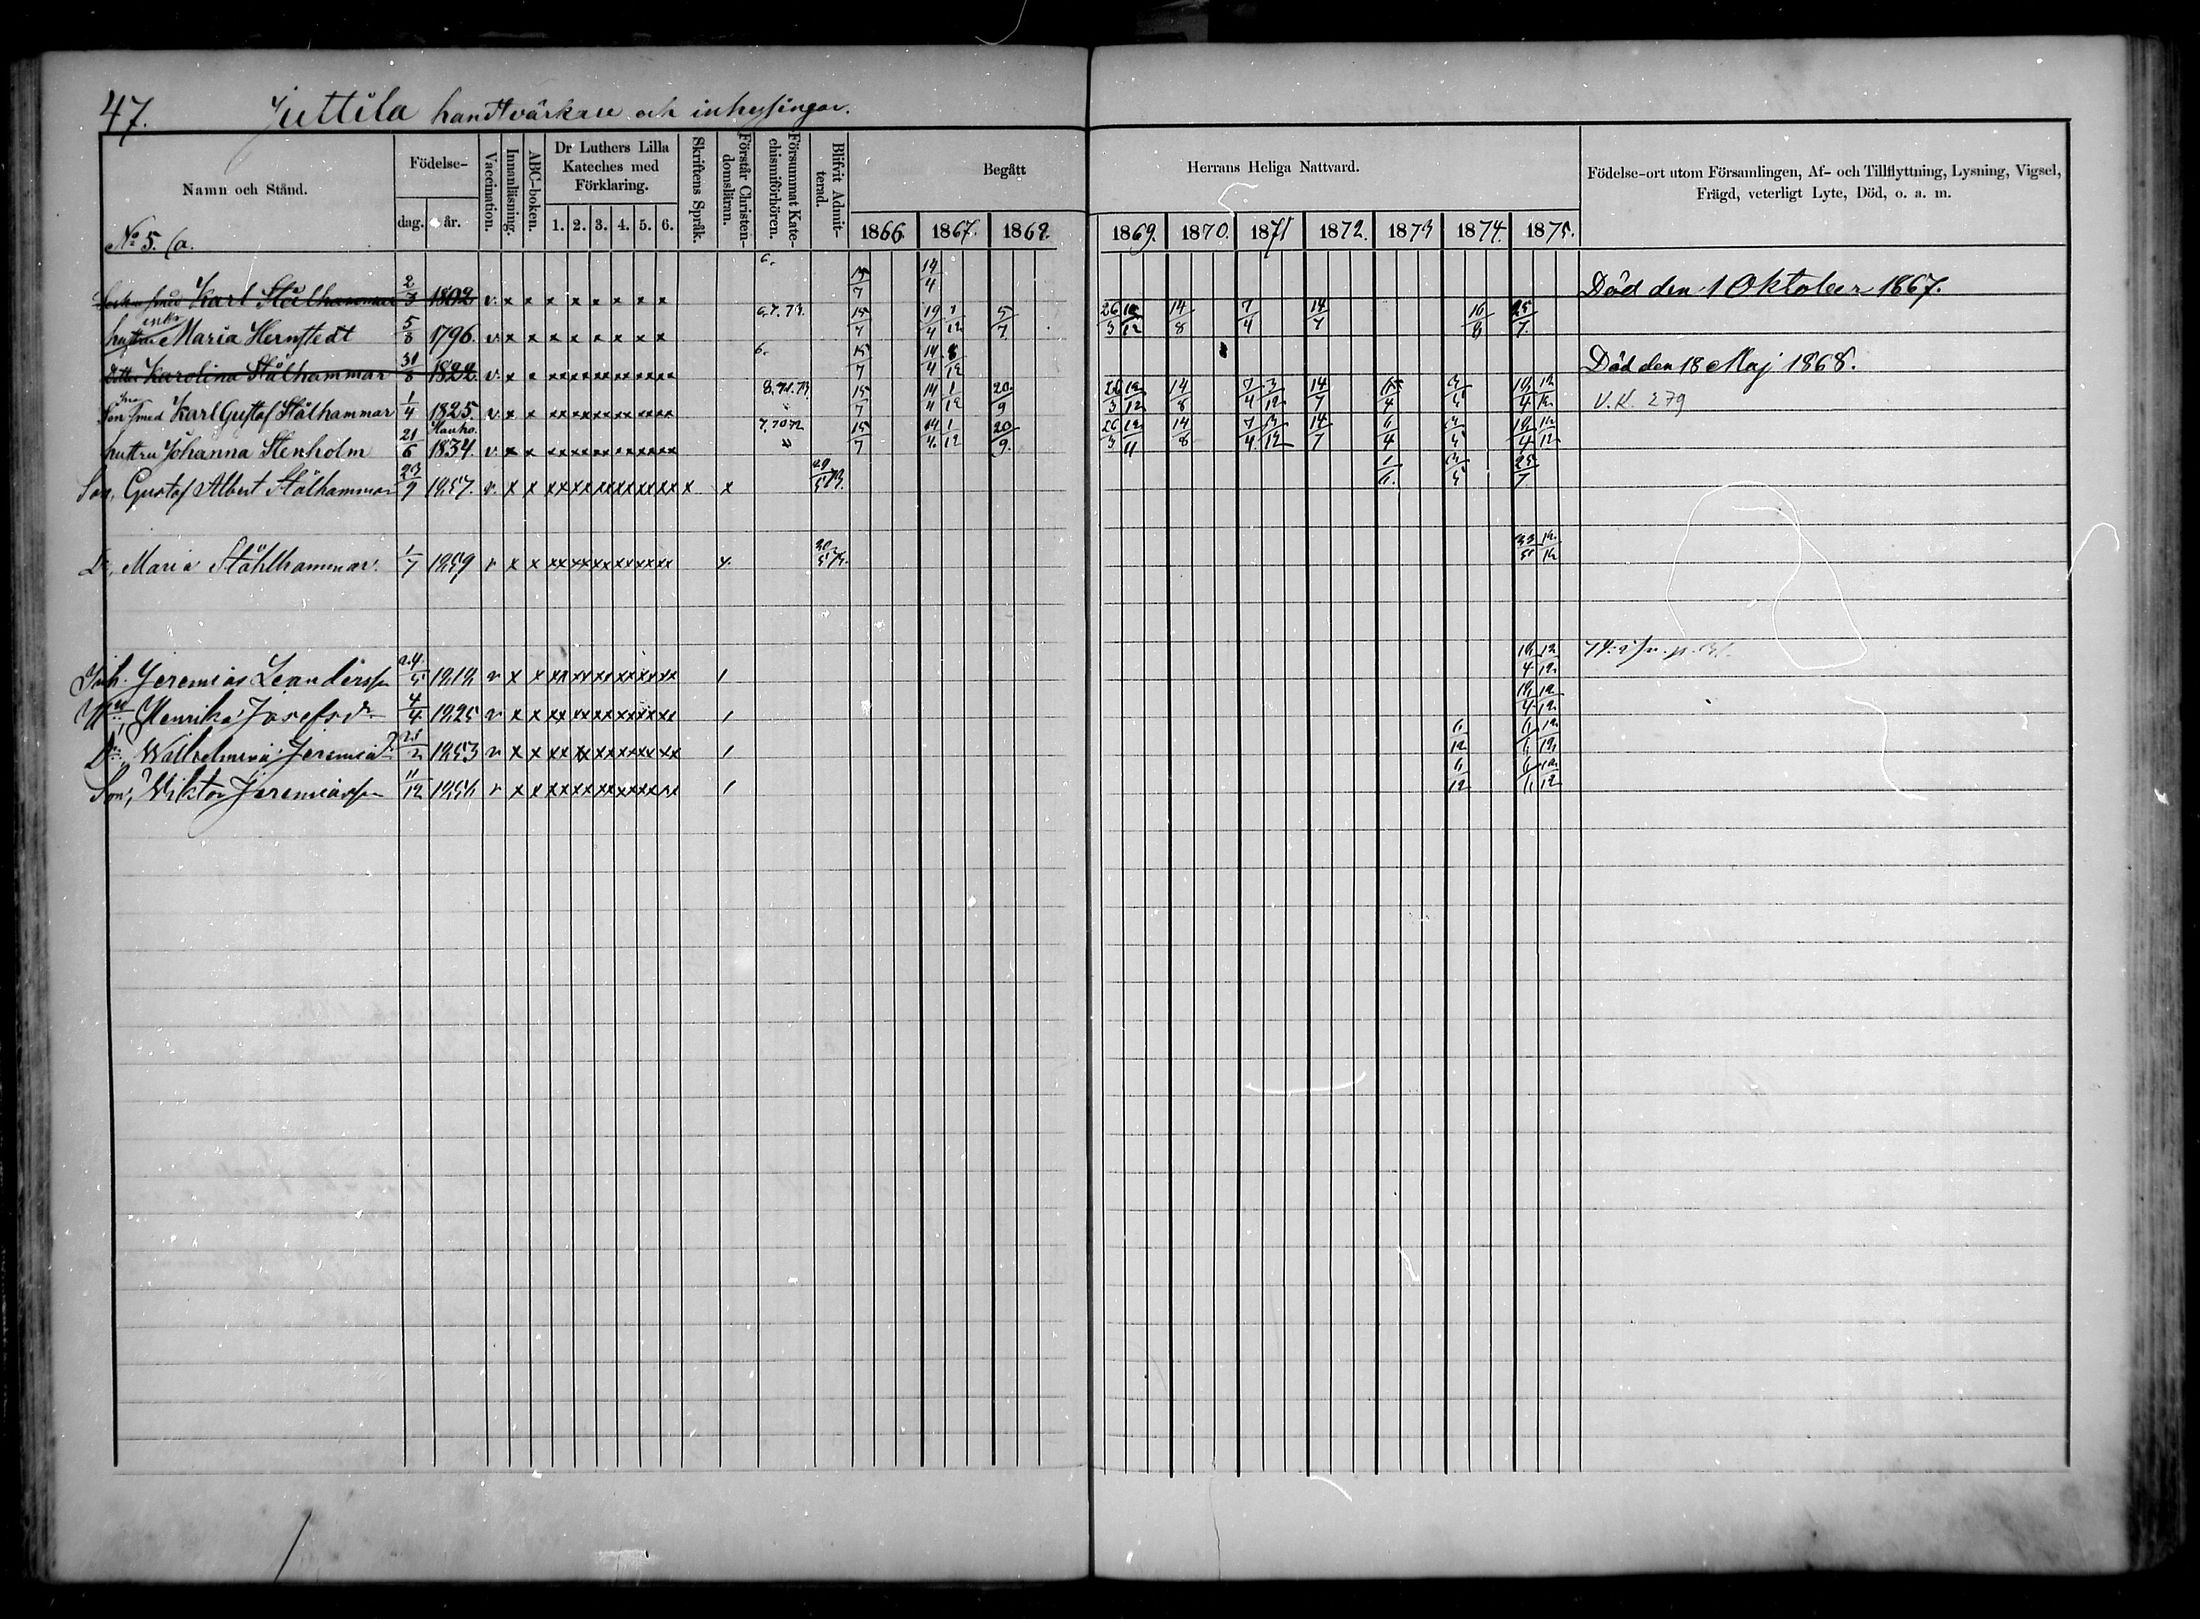 47. Juttila handtvärkare och inhysingar.
Namn och Stånd.
№ 5. 6a.
Födelse-
dag. år.
Vaccination.
Innanläsning.
ABC-boken.
Dr Luthers Lilla
Kateches med
Förklaring.
1. 2. 3. 4. 5. 6.
Skriftens Språk.
Förstår Christen-
domsläran.
Försummat Kate-
chismiförhören.
Blifvit Admit-
terad.
Begått Herrans Heliga Nattvard.
1866. 1867. 1868. 1869. 1870. 1871 1872. 1873 1874. 1875.
Födelse-ort utom Församlingen, Af- och Tillflyttning, Lysning, Vigsel,
Frägd, veterligt Lyte, Död, o. a. m.
smed Karl Stålhammar 2/3 1802 v. x x x x x x x x 6. 15/7 14/4 Död den 1 Oktober 1867.
enka
hustru Maria Hernstedt 5/8 1796. v. x x x x x x x x 15/7 5/7 14/8 7/4 14/7 16/8 25/7.
Dotter Karolina Stålhammar 31/8 1822. v. x x xx xx xx xx xx xx 6. 15/7 Död den 18 Maj 1868.
Son smed Karl Gustaf Stålhammar 1/4 1825. v. x x xx xx xx xx xx xx 15/7 14/4 1/12 20/9 26/3 12/12 14/8 7/4 3/12 14/7 V.K. 279
Hauho.
hustru Johanna Stenholm 21/6 1834. v. x x xx xx xx xx xx xx 7. 70 72 15/7 14/4. 1/12 20/9. 14/8 7/4. 3/12 14/7 6/4
Son, Gustaf Albert Stålhammar 23/9 1857. v. x x xx xx xx xx xx xx x x 25/7.
Dr, Maria Ståhlhammar. 1/7 1859 v x x xx xx xx xx xx xx x.
Inh. Jeremias Leandersson 24/5 1818 v x x xx xx xx xx xx xx /
Hu, Henrika Josefsdr 4/4 1825 v x x xx xx xx xx xx xx /
Dr, Wilhelmina Jeremiasdr 1853 v x x xx xx xx xx xx xx / 6/12
Son, Viktor Jeremiasson 11/12 v x x xx xx xx xx xx xx / 6/12